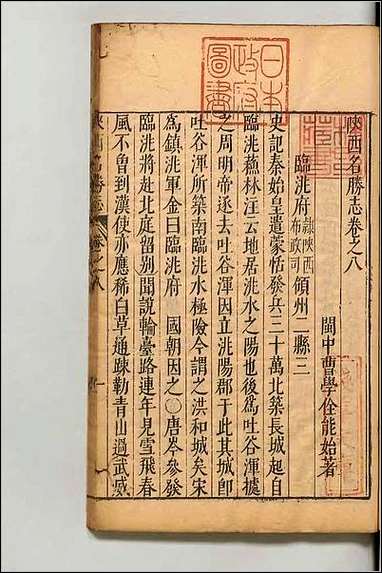 陝西名勝志卷之八
閩中曹學佺能始著
臨洮府隸陝西布政司領州二縣三
史記秦始皇遣蒙恬發兵三十萬北築長城起自
臨洮蘇林注云地居洮水之陽也後爲吐谷渾據
之周明帝逐去吐谷渾因立洮陽郡于此其城卽
吐谷渾所築南臨洮水極險今謂之洪和城矣宋
爲鎮洮軍金曰臨洮府　國朝因之○唐岑參發
臨洮將赴北庭留別聞說輪臺路連年見雪飛春
風不曾到漢使亦應稀白草通疎勒青山過武威
陝西名勝志　卷之八　一
日本政府圖書